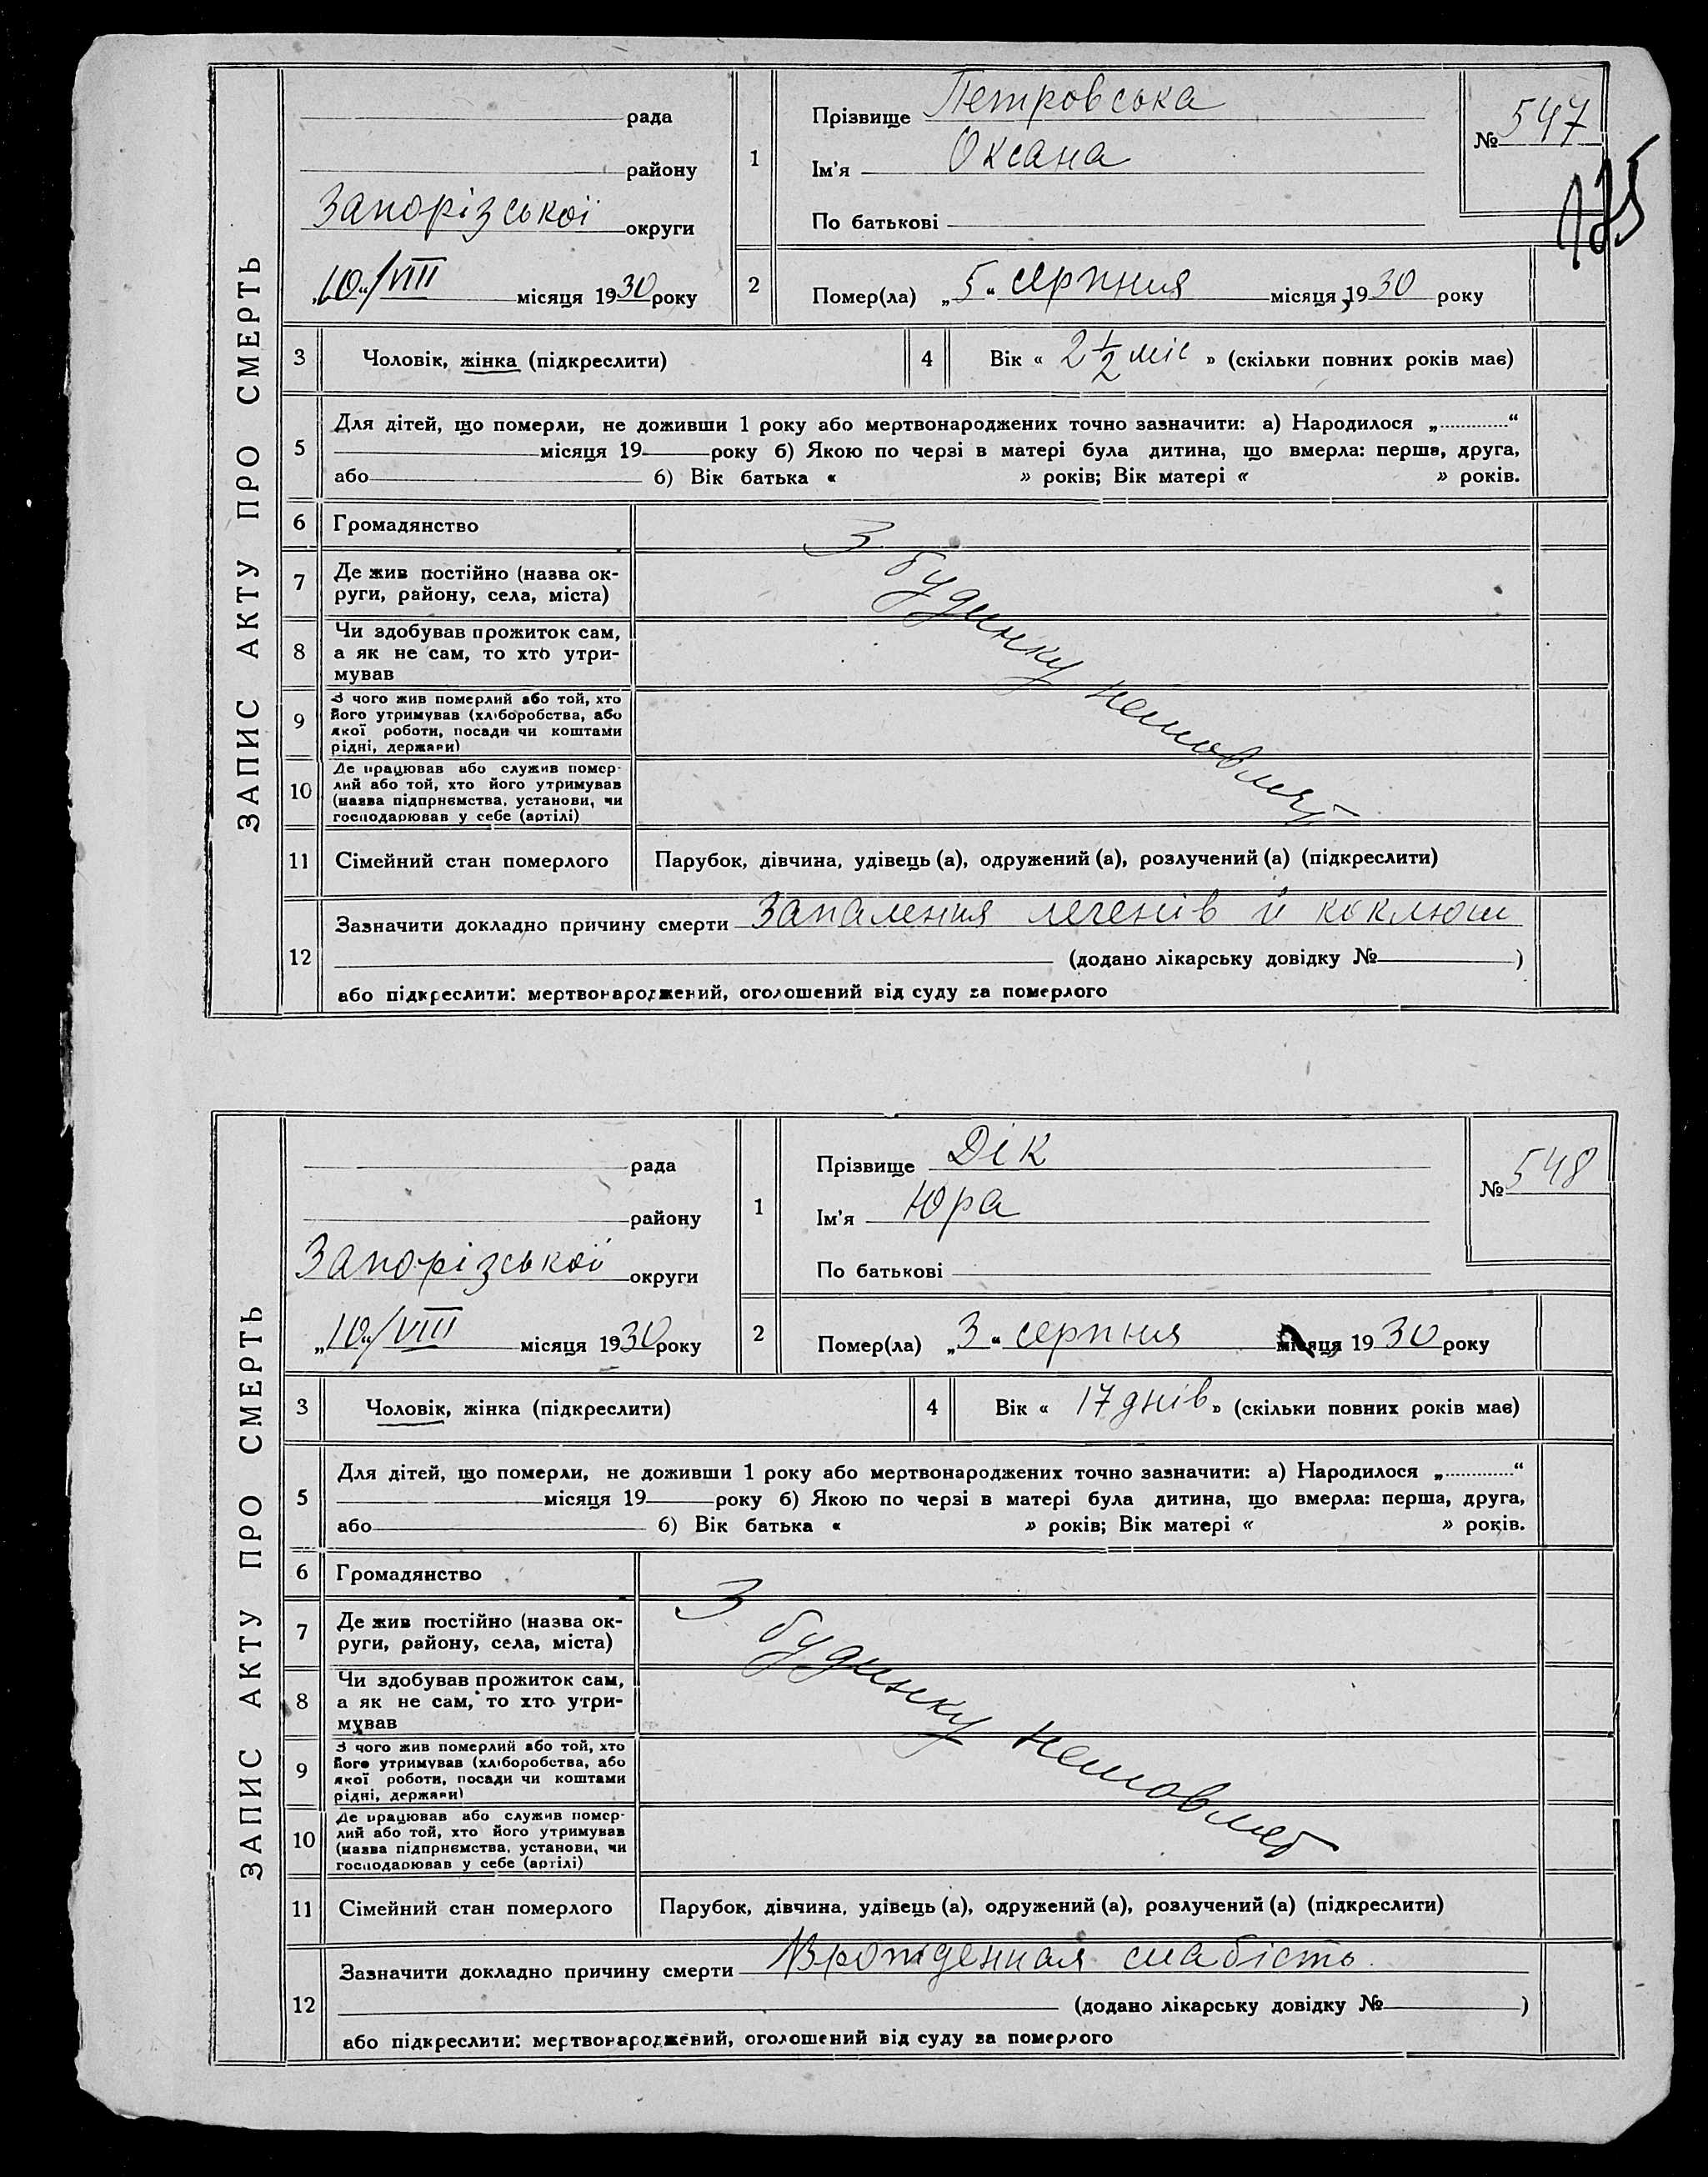 ЗАПИС АКТУ ПРО СМЕРТЬ
рада
району
Запорізської округи
„10“/VIII місяця 1930 року
1
Прізвище Петровська
Ім'я Оксана
По батькові
№ 547
2
Помер(ла) „5“ серпния місяця 1930 року
3
Чоловік, жінка (підкреслити)
4
Вік « 2 1/2 міс » (скільки повних років має)
5
Для дітей, що померли, не доживши 1 року або мертвонароджених точно зазначити: а) Народилося „ “
місяця 19 року б) Якою по черзі в матері була дитина, що вмерла: перша, друга,
або б) Вік батька « » років; Вік матері « » років.
6
Громадянство
7
Де жив постійно (назва ок-
руги, району, села, міста)
8
Чи здобував прожиток сам,
а як не сам, то хто утри-
мував
9
З чого жив померлий або той, хто
його утримував (хліборобства, або
якої роботи, посади чи коштами
рідні, держави)
10
Де працював або служив помер-
лий або той, хто його утримував
(назва підприємства, установи, чи
господарював у себе (артілі)
З будинку немовлят
11
Сімейний стан померлого
Парубок, дівчина, удівець (а), одружений (а), розлучений (а) (підкреслити)
12
Зазначити докладно причину смерти Запаления легенів й коклюш
(додано лікарську довідку № )
або підкреслити: мертвонароджений, оголошений від суду за померлого
ЗАПИС АКТУ ПРО СМЕРТЬ
рада
району
Запорізської округи
„10“/VIII місяця 1930 року
1
Прізвище Дік
Ім'я Юра
По батькові
№ 548
2
Помер(ла) „3“ серпния місяця 1930 року
3
Чоловік, жінка (підкреслити)
4
Вік « 17 днів » (скільки повних років має)
5
Для дітей, що померли, не доживши 1 року або мертвонароджених точно зазначити: а) Народилося „ “
місяця 19 року б) Якою по черзі в матері була дитина, що вмерла: перша, друга,
або б) Вік батька « » років; Вік матері « » років.
6
Громадянство
7
Де жив постійно (назва ок-
руги, району, села, міста)
8
Чи здобував прожиток сам,
а як не сам, то хто утри-
мував
9
З чого жив померлий або той, хто
його утримував (хліборобства, або
якої роботи, посади чи коштами
рідні, держави)
10
Де працював або служив помер-
лий або той, хто його утримував
(назва підприємства, установи, чи
господарював у себе (артілі)
З будинку немовлят
11
Сімейний стан померлого
Парубок, дівчина, удівець (а), одружений (а), розлучений (а) (підкреслити)
12
Зазначити докладно причину смерти Врожденная слабість.
(додано лікарську довідку № )
або підкреслити: мертвонароджений, оголошений від суду за померлого